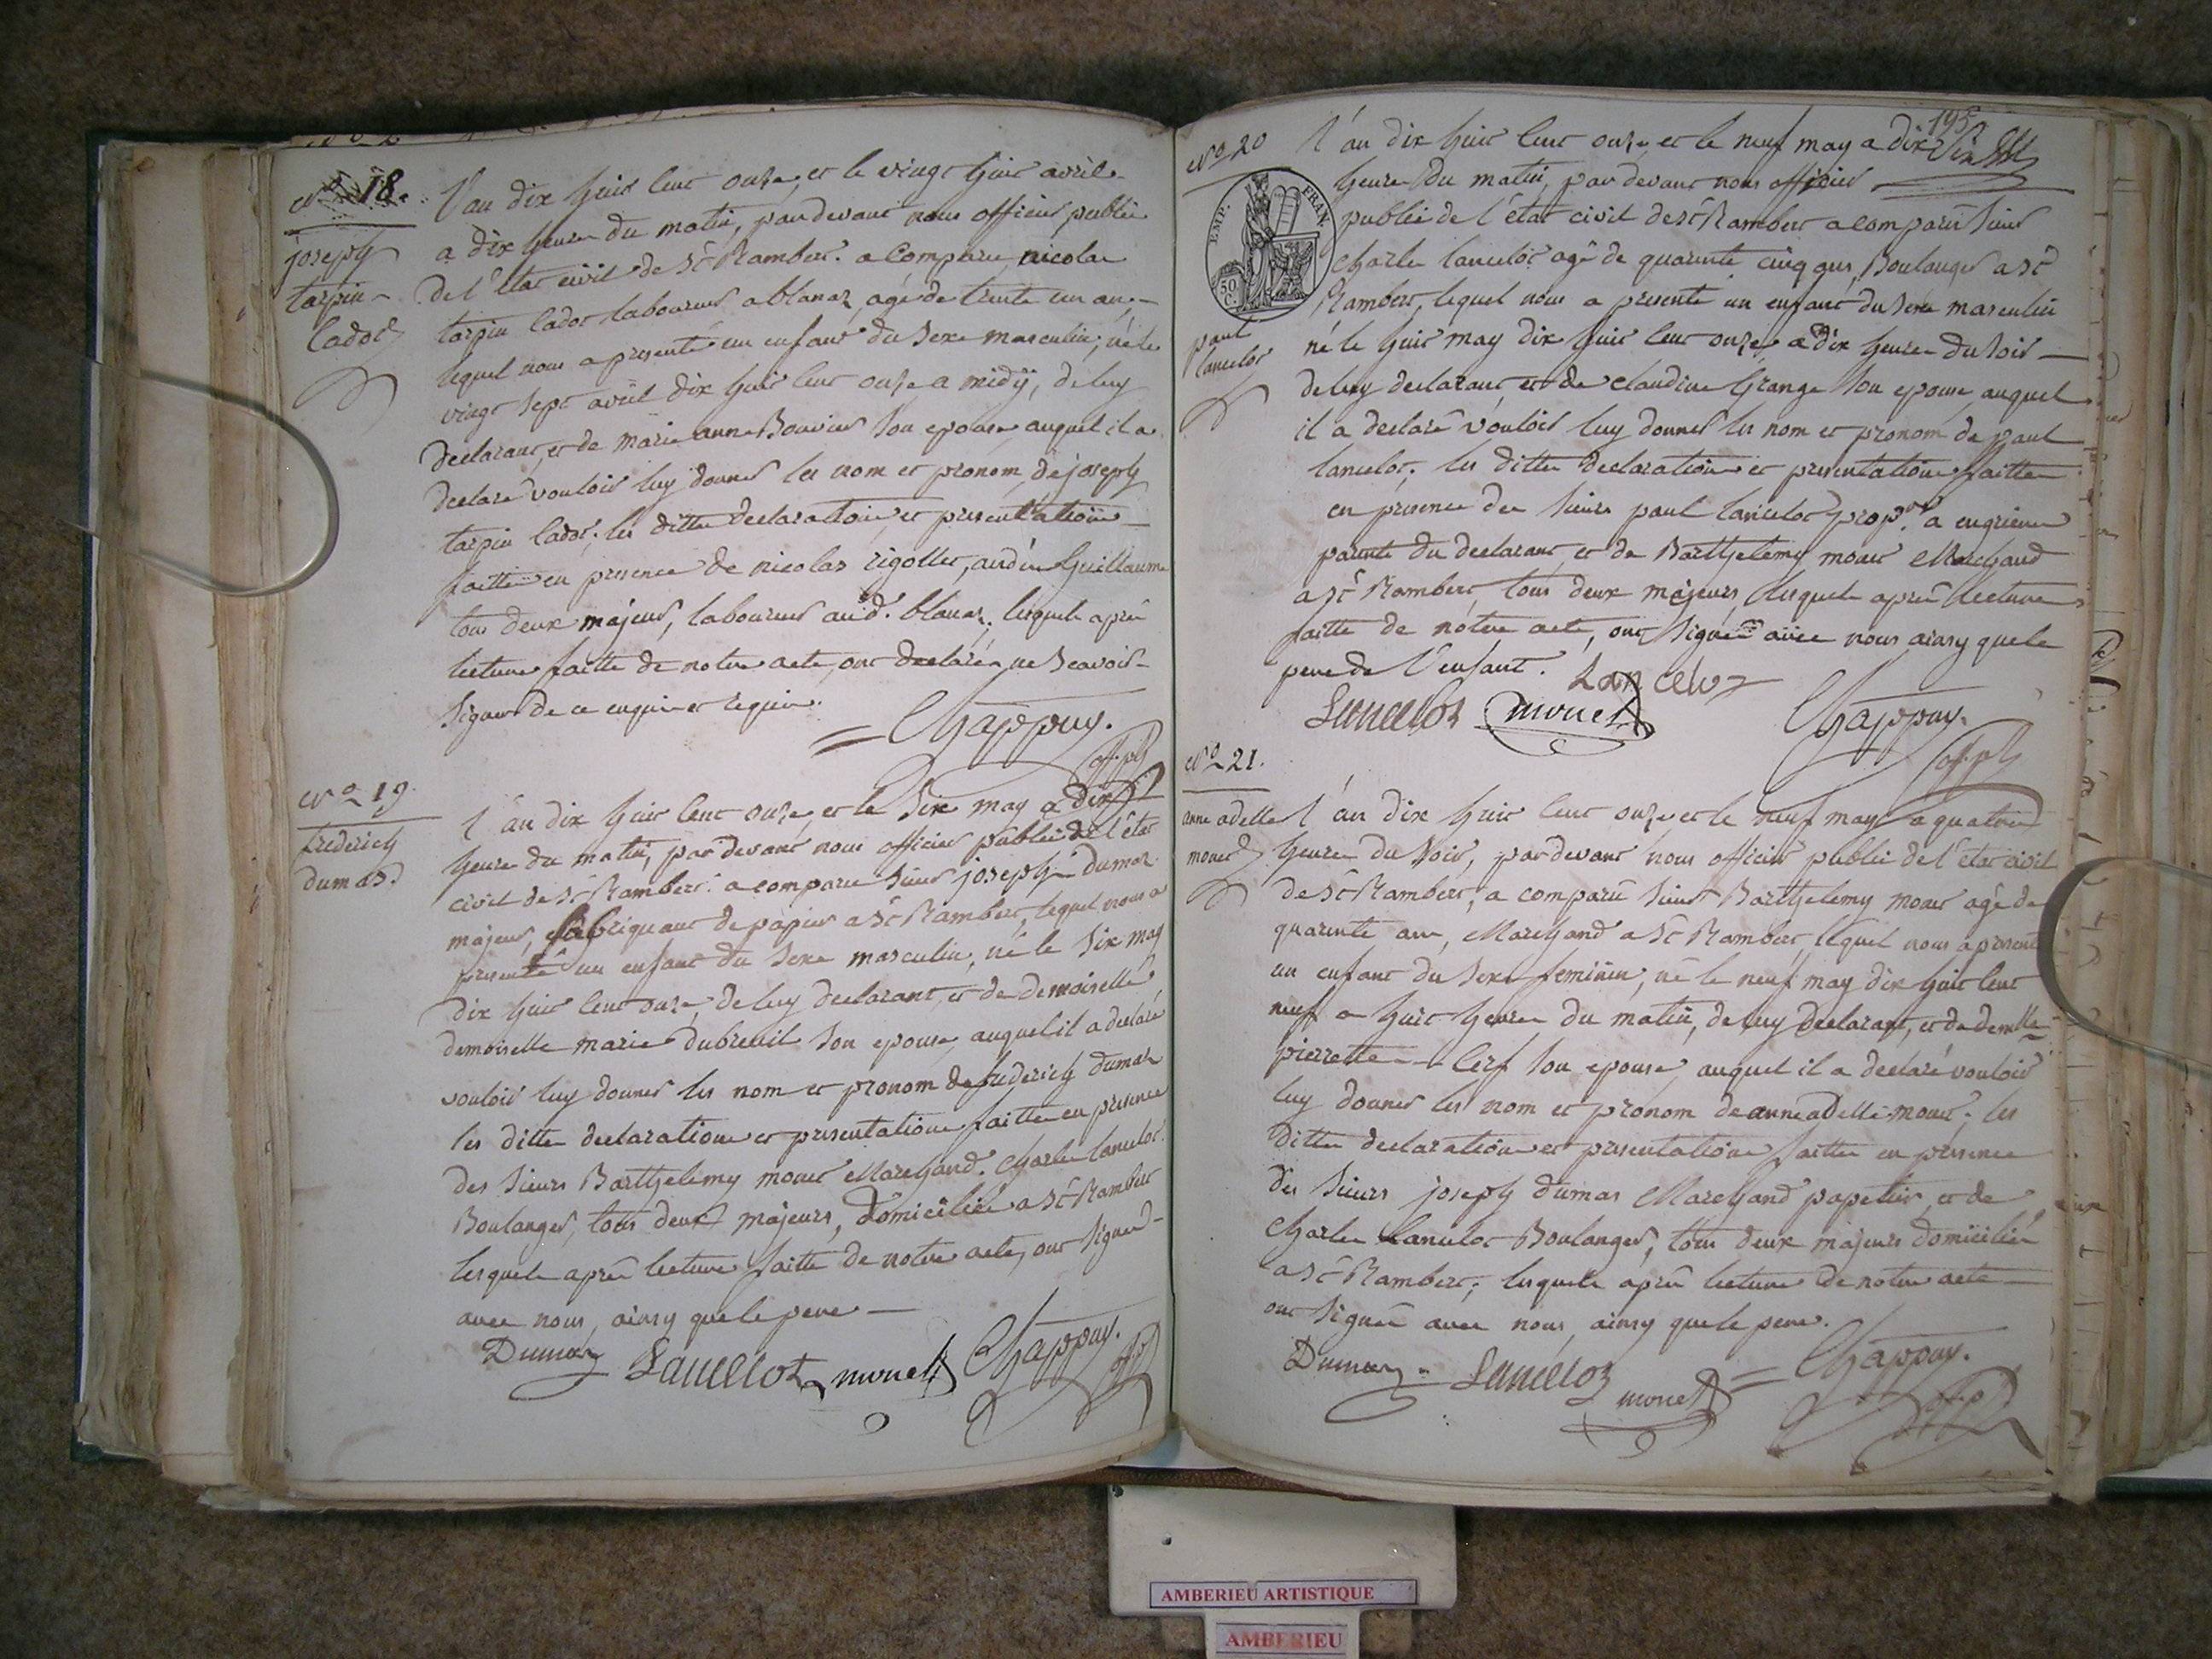 N° 18.
joseph
tarpin
Cadot
L'an dix huit cent onze, et le vingt huit avril
a dix heures du matin, pardevant nous officier public
de l'Etat civil de St Rambert. a Comparu nicolas
tarpin Cadot laboureur a blanaz, agé de trente un ans
lequel nous a presenté un enfant du sexe masculin, né le
vingt sept avril dix huit cent onze a midÿ, de luy
declarant, et de marie anne Bouvier son epouse, auquel il a
declaré vouloir luy donner les nom et pronom, de joseph
tarpin Cadot; les dittes declaration et presentation
faitte en presence de nicolas rigollet, andré Guillaume
tous deux majeurs, laboureur aud. blanaz; lesquels après
lecture faitte de notre acte, ont declaré ne scavoir
signer de ce enquis et requis.
Chappuy.
off. p
N° 19.
frederich
dumas.
L'an dix huit cent onze, et le Six may a dix
heures du matin, pardevant nous officier public de l'état
civil de St Rambert. a comparu sieur joseph dumas
majeur, fabriquant de papier a St Rambert, lequel nous a
presenté un enfant du sexe masculin, né le six may
dix huit cent onze, de luy declarant, et de demoiselle
demoiselle marie dubreuil son epouse, auquel il a declaré
vouloir luy donner les nom et pronom de frederich dumas
les dittes declaration et presentation faitte en presence
des sieurs Barthelemy monet Marchand. Charles lancelot
Boulanger, tous deux majeurs, domiciliés a St Rambert
lesquels après lecture faitte de notre acte, ont signer
avec nous, ainsy que le pere
Dumas Lancelot monet Chappuy.
off. p
195
N° 20
EMP. FRAN.
50 C.
paul
lancelot
L'an dix huit cent onze, et le neuf may a dix
heures du matin, pardevant nous officier
public de l'état civil de St Rambert a comparu sieur
Charles lancelot agé de quarente cinq ans, Boulanger a St
Rambert, lequel nous a presenté un enfant du sexe masculin
né le huit may dix huit cent onze, a dix heures du soir
de luy declarant, et de claudine Grange son epouse, auquel
il a declaré vouloir luy donner les nom et pronom de paul
lancelot; les dittes declaration et presentation faitte
en presence des sieurs paul lancelot prop.re a
parente du declarant, et de Barthelemy monet Marchand
a St Rambert, tous deux majeurs, lesquels après lecture
faitte de notre acte, ont signés avec nous ainsy que le
pere de l'enfant. Lancelot
Lancelot monet Chappuy.
off. p
N° 21.
anne adelle
monet
L'an dix huit cent onze et le neuf may a quatre
heures du soir, pardevant nous officier public de l'état civil
de St Rambert, a comparu sieur Barthelemy monet agé de
quarente ans, Marchand a St Rambert, lequel nous a presenté
un enfant du sexe feminin, né le neuf may dix huit cent
neuf a huit heures du matin, de luy declarant, et de demlle
pierrette Cerf son epouse, auquel il a declaré vouloir
luy donner les nom et pronom de anne adelle monet; les
dittes declaration et presentation faitte en presence
des sieurs joseph dumas Marchand papetier, et de
Charles Lancelot Boulanger, tous deux majeurs domiciliés
a St Rambert; lesquels après lecture de notre acte
ont signés avec nous, ainsy que le pere.
Dumas Lancelot monet Chappuy.
off. p
AMBERIEU ARTISTIQUE
AMBERIEU